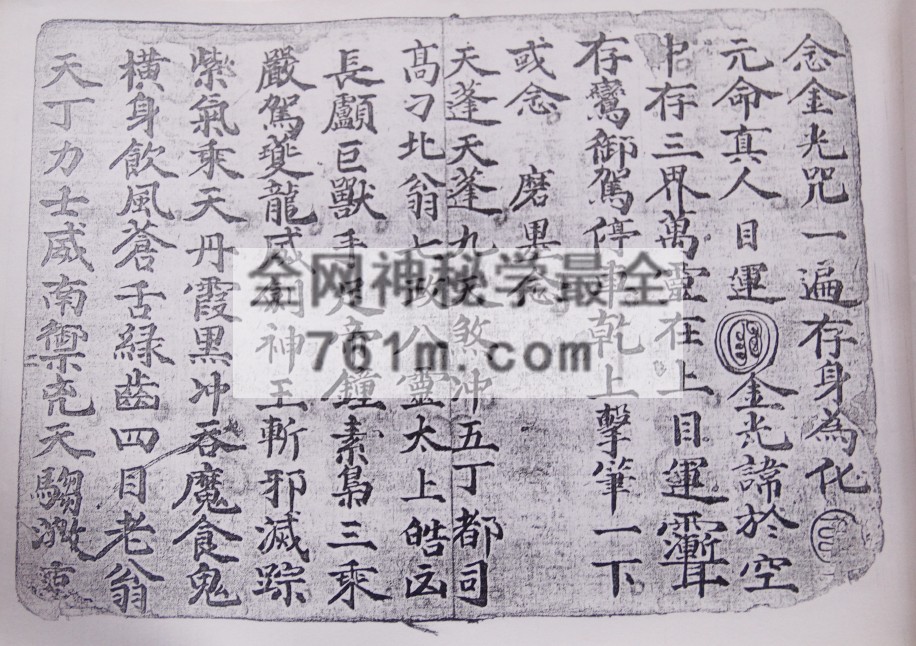 念金光咒一遍存身為化
元命真人 目運 金光諱於空
中存三界萬靈在上目運
存鸞御駕停車乾上擊筆一下
或念 磨黑念
天蓬天蓬九煞冲五丁都司
高刁北翁七政八靈太上皓凶
長顱巨獸手帝鐘素梟三乘
嚴駕夔龍威劍神王斬邪滅踪
紫氣乘天丹霞黑冲吞魔食鬼
橫身飲風蒼舌緑齒四目老翁
天丁力士威南禦兇天騶激
全网神秘学最全
761m.com